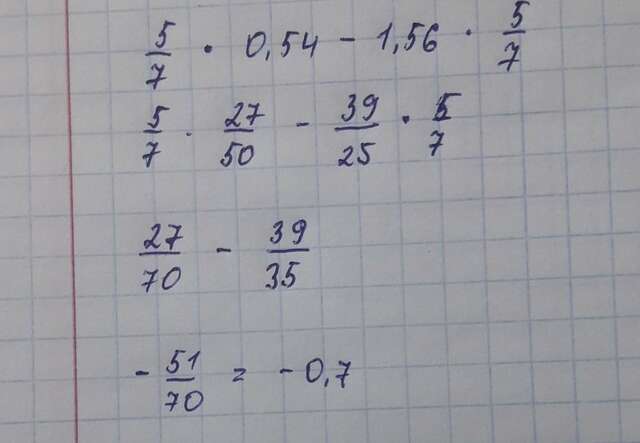 5/7 · 0,54 - 1,56 · 5/7
5/7 · 27/50 - 39/25 · 5/7
27/70 - 39/35
- 51/70 = - 0,7